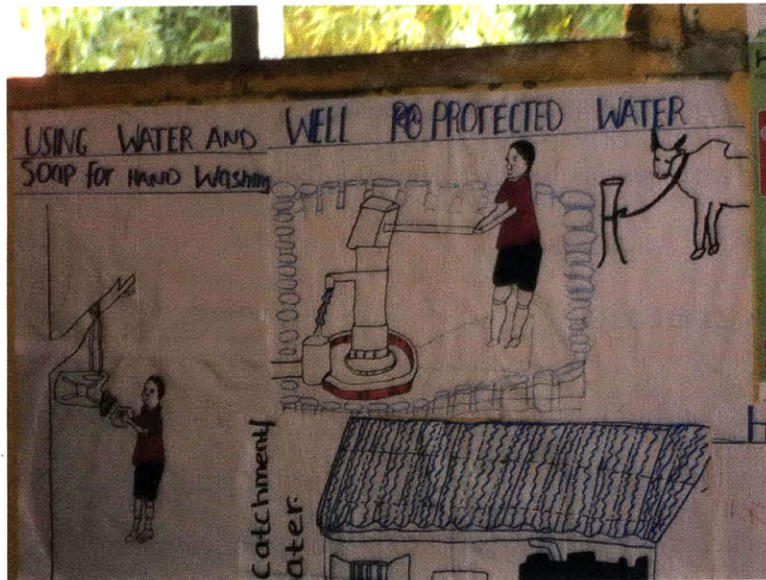 USING WATER AND
SOAP FOR HAND Washing
WELL PROTECTED WATER
Catchment
ater.